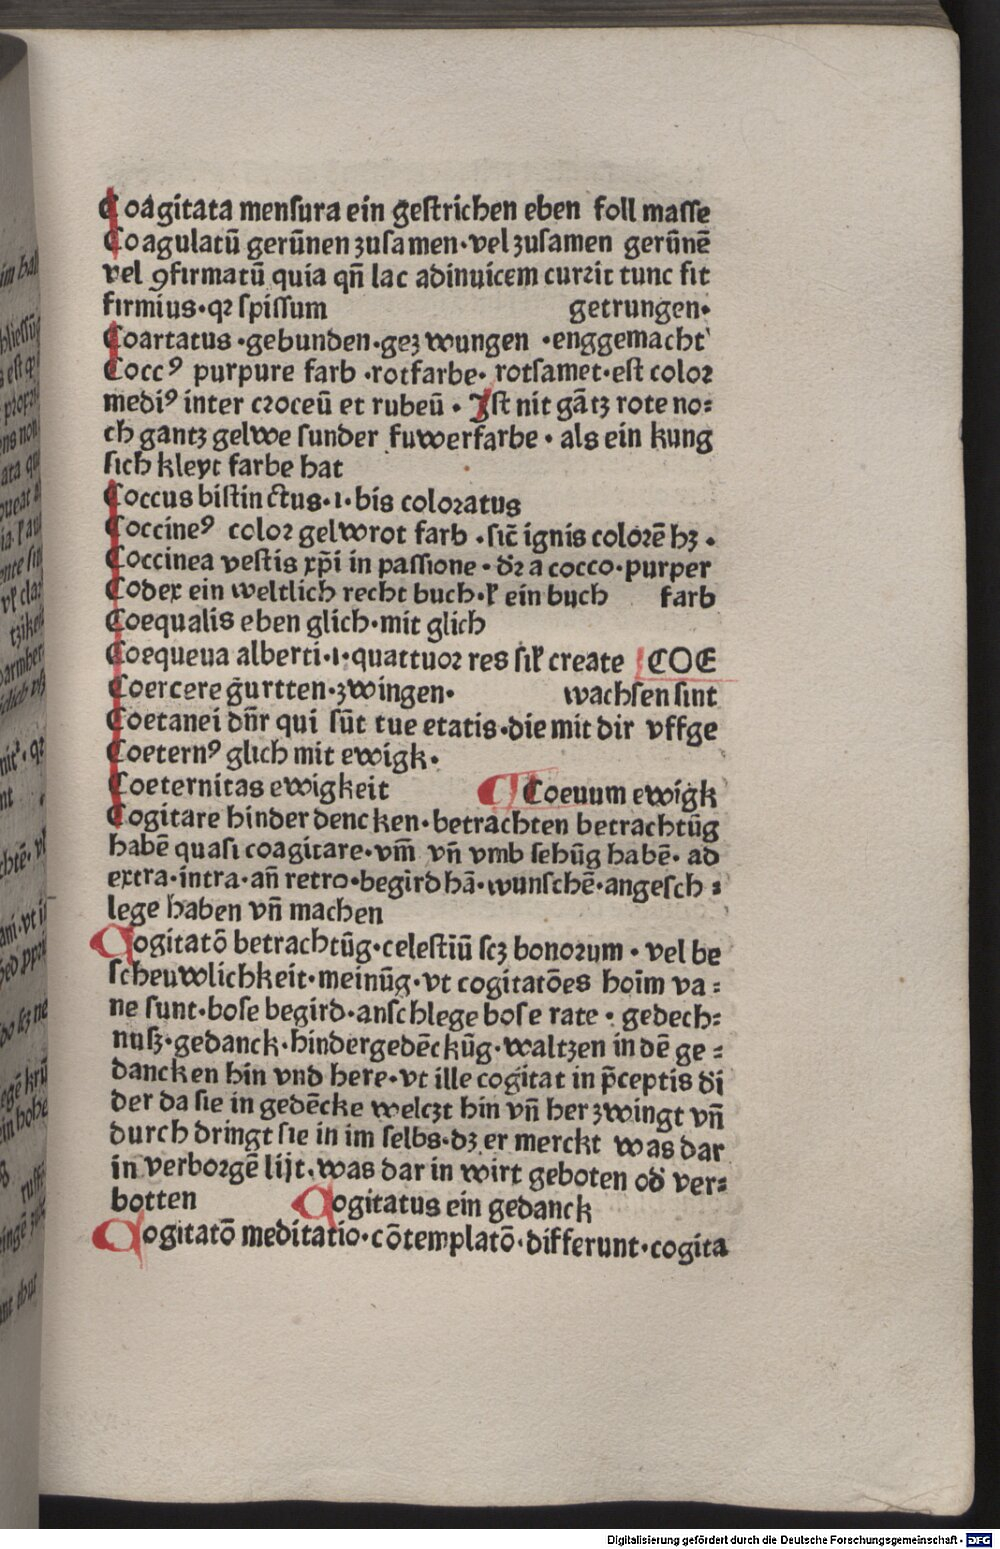 Coagitata menſura ein geſtrichen eben foll maſſe
Coagulatū gerūnen zuſamen·vel zuſamen gerūnē
vel ꝯfirmatū quia qñ lac adinuicem currit tunc fit
firmius·qꝛ ſpiſſum getrungen·
Coartatus ·gebunden·gezwungen ·enggemacht
Coccꝰ purpure farb ·rotfarbe· rotſamet·eſt coloꝛ
mediꝰ inter cꝛoceū et rubeū · Iſt nit gātz rote no⸗
ch gantz gelwe ſunder fuwerfarbe · als ein kung
ſich kleyt farbe hat
Coccus biſtinctus·ı·bis coloꝛatus
Coccineꝰ coloꝛ gelwrot farb ·ſic̄ ignis coloꝛē hꝫ ·
Coccinea veſtis xp̄i in paſſione · dr̄ a cocco·purper
Codex ein weltlich recht buch·ꝉ ein buch farb
Coequalis eben glich·mit glich
Coequeua alberti·ı·quattuoꝛ res ſiꝉ create COE
Coercere gurtten·zwingen· wachſen ſint
Coetanei dn̄r qui ſūt tue etatis·die mit dir vffge
Coeternꝰ glich mit ewigk·
Coeternitas ewigkeit Coeuum ewigk
Cogitare hinder dencken·betrachten betrachtūg
habē quaſi coagitare·vm̄ vñ vmb ſehūg habē· ad
extra·intra·añ retro·begird hā·wunſchē·angeſch⸗
lege haben vñ machen
Cogitatō betrachtūg·celeſtiū ſcꝫ bonoꝛum · vel be
ſcheuwlichkeit·meinūg·vt cogitatōes hoīm va⸗
ne ſunt·boſe begird·anſchlege boſe rate · gedech⸗
nuſz·gedanck·hindergedēckūg·waltzen in dē ge⸗
dancken hin vnd here·vt ille cogitat in p̄ceptis di
der da ſie in gedēcke welczt hin vñ her zwingt vñ
durch dringt ſie in im ſelbs·dꝫ er merckt was dar
in verboꝛgē lijt·was dar in wirt geboten od̄ ver⸗
botten Cogitatus ein gedanck
Cogitatō meditatio·cōtemplatō·differunt·cogita
Digitalisierung gefördert durch die Deutsche Forschungsgemeinschaft · DFG